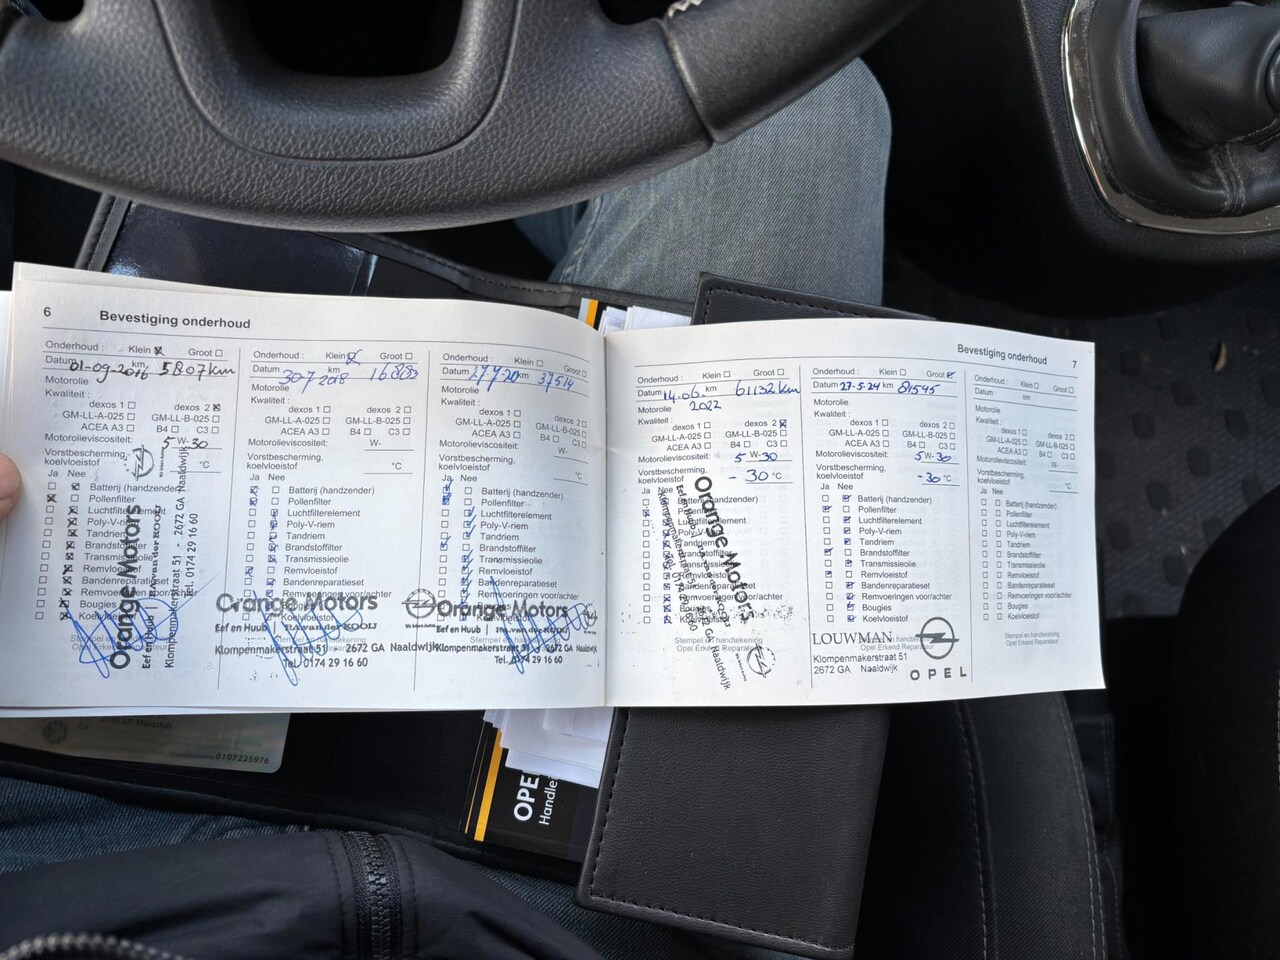 6 Bevestiging onderhoud
Onderhoud : Klein Groot
Datum 01-09-2016 km 5807 km
Motorolie
Kwaliteit :
dexos 1 dexos 2
GM-LL-A-025 GM-LL-B-025
ACEA A3 B4 C3
Motorolieviscositeit: 5 W-30
Vorstbescherming, koelvloeistof °C
Ja Nee
Batterij (handzender)
Pollenfilter
Luchtfilterelement
Poly-V-riem
Tandriem
Brandstoffilter
Transmissieolie
Remvloeistof
Bandenreparatieset
Remvoeringen voor/achter
Bougies
Koelvloeistof
Orange Motors
Eef en Huub
Klompenmakerstraat 51 - 2672 GA Naaldwijk
Tel. 0174 29 16 60
Onderhoud : Klein Groot
Datum 30 7 2018 km 16882
Motorolie
Kwaliteit :
dexos 1 dexos 2
GM-LL-A-025 GM-LL-B-025
ACEA A3 B4 C3
Motorolieviscositeit: W-
Vorstbescherming, koelvloeistof °C
Ja Nee
Batterij (handzender)
Pollenfilter
Luchtfilterelement
Poly-V-riem
Tandriem
Brandstoffilter
Transmissieolie
Remvloeistof
Bandenreparatieset
Remvoeringen voor/achter
Bougies
Koelvloeistof
Orange Motors
Eef en Huub
Klompenmakerstraat 51 2672 GA Naaldwijk
Tel. 0174 29 16 60
Onderhoud : Klein Groot
Datum km 37514
Motorolie
Kwaliteit :
dexos 1 dexos 2
GM-LL-A-025 GM-LL-B-025
ACEA A3 B4 C3
Motorolieviscositeit: W-
Vorstbescherming, koelvloeistof °C
Ja Nee
Batterij (handzender)
Pollenfilter
Luchtfilterelement
Poly-V-riem
Tandriem
Brandstoffilter
Transmissieolie
Remvloeistof
Bandenreparatieset
Remvoeringen voor/achter
Bougies
Koelvloeistof
Orange Motors
Eef en Huub
Klompenmakerstraat 51 2672 GA Naaldwijk
Tel. 0174 29 16 60
Bevestiging onderhoud 7
Onderhoud : Klein Groot
Datum 14-06-2022 km 61132 km
Motorolie
Kwaliteit :
dexos 1 dexos 2
GM-LL-A-025 GM-LL-B-025
ACEA A3 B4 C3
Motorolieviscositeit: 5 W-30
Vorstbescherming, koelvloeistof -30 °C
Ja Nee
Batterij (handzender)
Pollenfilter
Luchtfilterelement
Poly-V-riem
Tandriem
Brandstoffilter
Transmissieolie
Remvloeistof
Bandenreparatieset
Remvoeringen voor/achter
Bougies
Koelvloeistof
Stempel en handtekening
Opel Erkend Reparateur
Orange Motors
Eef en Huub
Klompenmakerstraat 51 2672 GA Naaldwijk
Tel. 0174 29 16 60
Onderhoud : Klein Groot
Datum 27-5-24 km 81545
Motorolie
Kwaliteit :
dexos 1 dexos 2
GM-LL-A-025 GM-LL-B-025
ACEA A3 B4 C3
Motorolieviscositeit: 5 W-30
Vorstbescherming, koelvloeistof -30 °C
Ja Nee
Batterij (handzender)
Pollenfilter
Luchtfilterelement
Poly-V-riem
Tandriem
Brandstoffilter
Transmissieolie
Remvloeistof
Bandenreparatieset
Remvoeringen voor/achter
Bougies
Koelvloeistof
Stempel en handtekening
Opel Erkend Reparateur
LOUWMAN
Klompenmakerstraat 51
2672 GA Naaldwijk
OPEL
Onderhoud : Klein Groot
Datum km
Motorolie
Kwaliteit :
dexos 1 dexos 2
GM-LL-A-025 GM-LL-B-025
ACEA A3 B4 C3
Motorolieviscositeit: W-
Vorstbescherming, koelvloeistof °C
Ja Nee
Batterij (handzender)
Pollenfilter
Luchtfilterelement
Poly-V-riem
Tandriem
Brandstoffilter
Transmissieolie
Remvloeistof
Bandenreparatieset
Remvoeringen voor/achter
Bougies
Koelvloeistof
Stempel en handtekening
Opel Erkend Reparateur
0107225976
OPE
Handlei